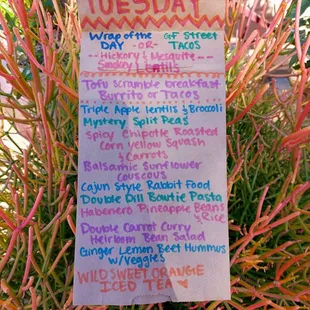 TUESDAY
Wrap of the GF Street
DAY -OR- TACOS
--Hickory & Mesquite--
Smokey Lentils
Tofu Scramble breakfast
Burrito or Tacos
Triple Apple lentils & Broccoli
Mystery Split Peas
Spicy Chipotle Roasted
Corn yellow Squash
& Carrots
Balsamic Sunflower
Couscous
Cajun Style Rabbit Food
Double Dill Bowtie Pasta
Habenero Pineapple Beans
& Rice
Double Carrot Curry
Heirloom Bean Salad
Ginger Lemon Beet Hummus
w/Veggies
WILD SWEET ORANGE
ICED TEA